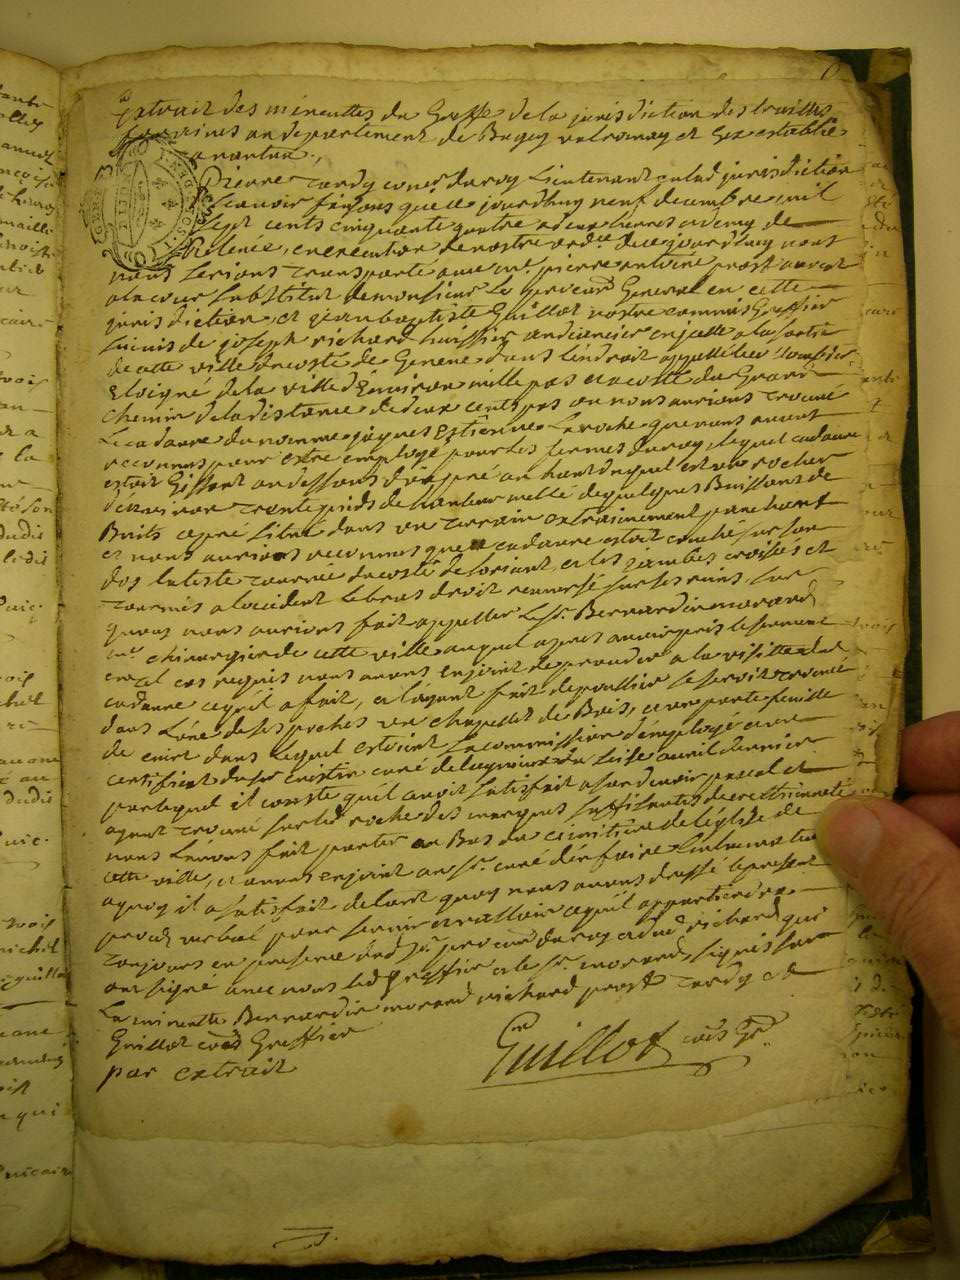 Extrait des minuttes du Greffe de la jurisdiction des traittes
foraines au departement de Bugey valromay et Gex establie
a nantua.
Pierre Tardy coner. du roy Lieutenant en lad. jurisdiction
sçavoir faisons que ce jourdhuy neuf decembre mil
sept cents cinquante quatre a deux heures de
Relevée, en execution de nostre ordce. de ce jourdhuy nous
nous serions transporté avec me. pierre antoine prost avocat
a la cour substitut de monsieur le procur. General en cette
jurisdiction, et jean baptiste Guillot nostre commis Greffier
suivis de joseph richard huissier audiancier en jcelle a la sortie
de cette ville du costé de Geneve dans lendroit appellé
Eloigné de la ville d'Environ mille pas et a costé du Grand
chemin de la distance de deux cents pas ou nous aurions trouvé
Le cadavre du nommé jaques Estienne Laroche que nous avons
reconnus pour estre employé pour les fermes du roy, lequel cadavre
estoit Gissant au dessous au haut duquel est un rocher
d'environ trente pieds de hauteur mellé de quelques Buissons de
Buits et situé dans un terrain extraimement panchant
et nous aurions reconnus que le cadavre estoit couché sur son
dos la teste tournée du costé de loriant, et les jambes croisées et
tournés a locident le bras droit renversé sur ses reins sur
quoy nous aurions fait appeller le Sr. Bernardin morand
me. chirurgien de cette ville auquel apres avoir pris le serment
en tal cas requis nous avons enjoint de proceder a la visitte dud.
cadavre ce qu'il a fait, et layant fait depoullier se seroit trouvé
dans l'une de ses poches un chappellet de Bois, et un porte feuille
de cuir dans lequel estoient la commission d'employé et un
certificat du Sr. curé de du avril dernier
par lequel il conste qu'il avoit satisfait a son devoir pascal et
ayant trouvé sur led. roche des marques suffisantes de crestienneté
nous L'avons fait porter au Bas du cimitiere de l'église de
cette ville, et avons enjoint au Sr. curé d'en faire l'inhumation
a quoy il a satisfait de tout quoy nous avons dressé le present
procés verbal pour servir et valloir a ce qu'il appartiendra
Toujours en presence dud. Sr. procur. du roy et dud. richard qui
ont signé avec nous led. Greffier et le Sr. morand, signés sur
La minutte Bernardin morand richard prost Tardy et
Guillot coms. Greffier
par extrait
Guillot coms Gr.